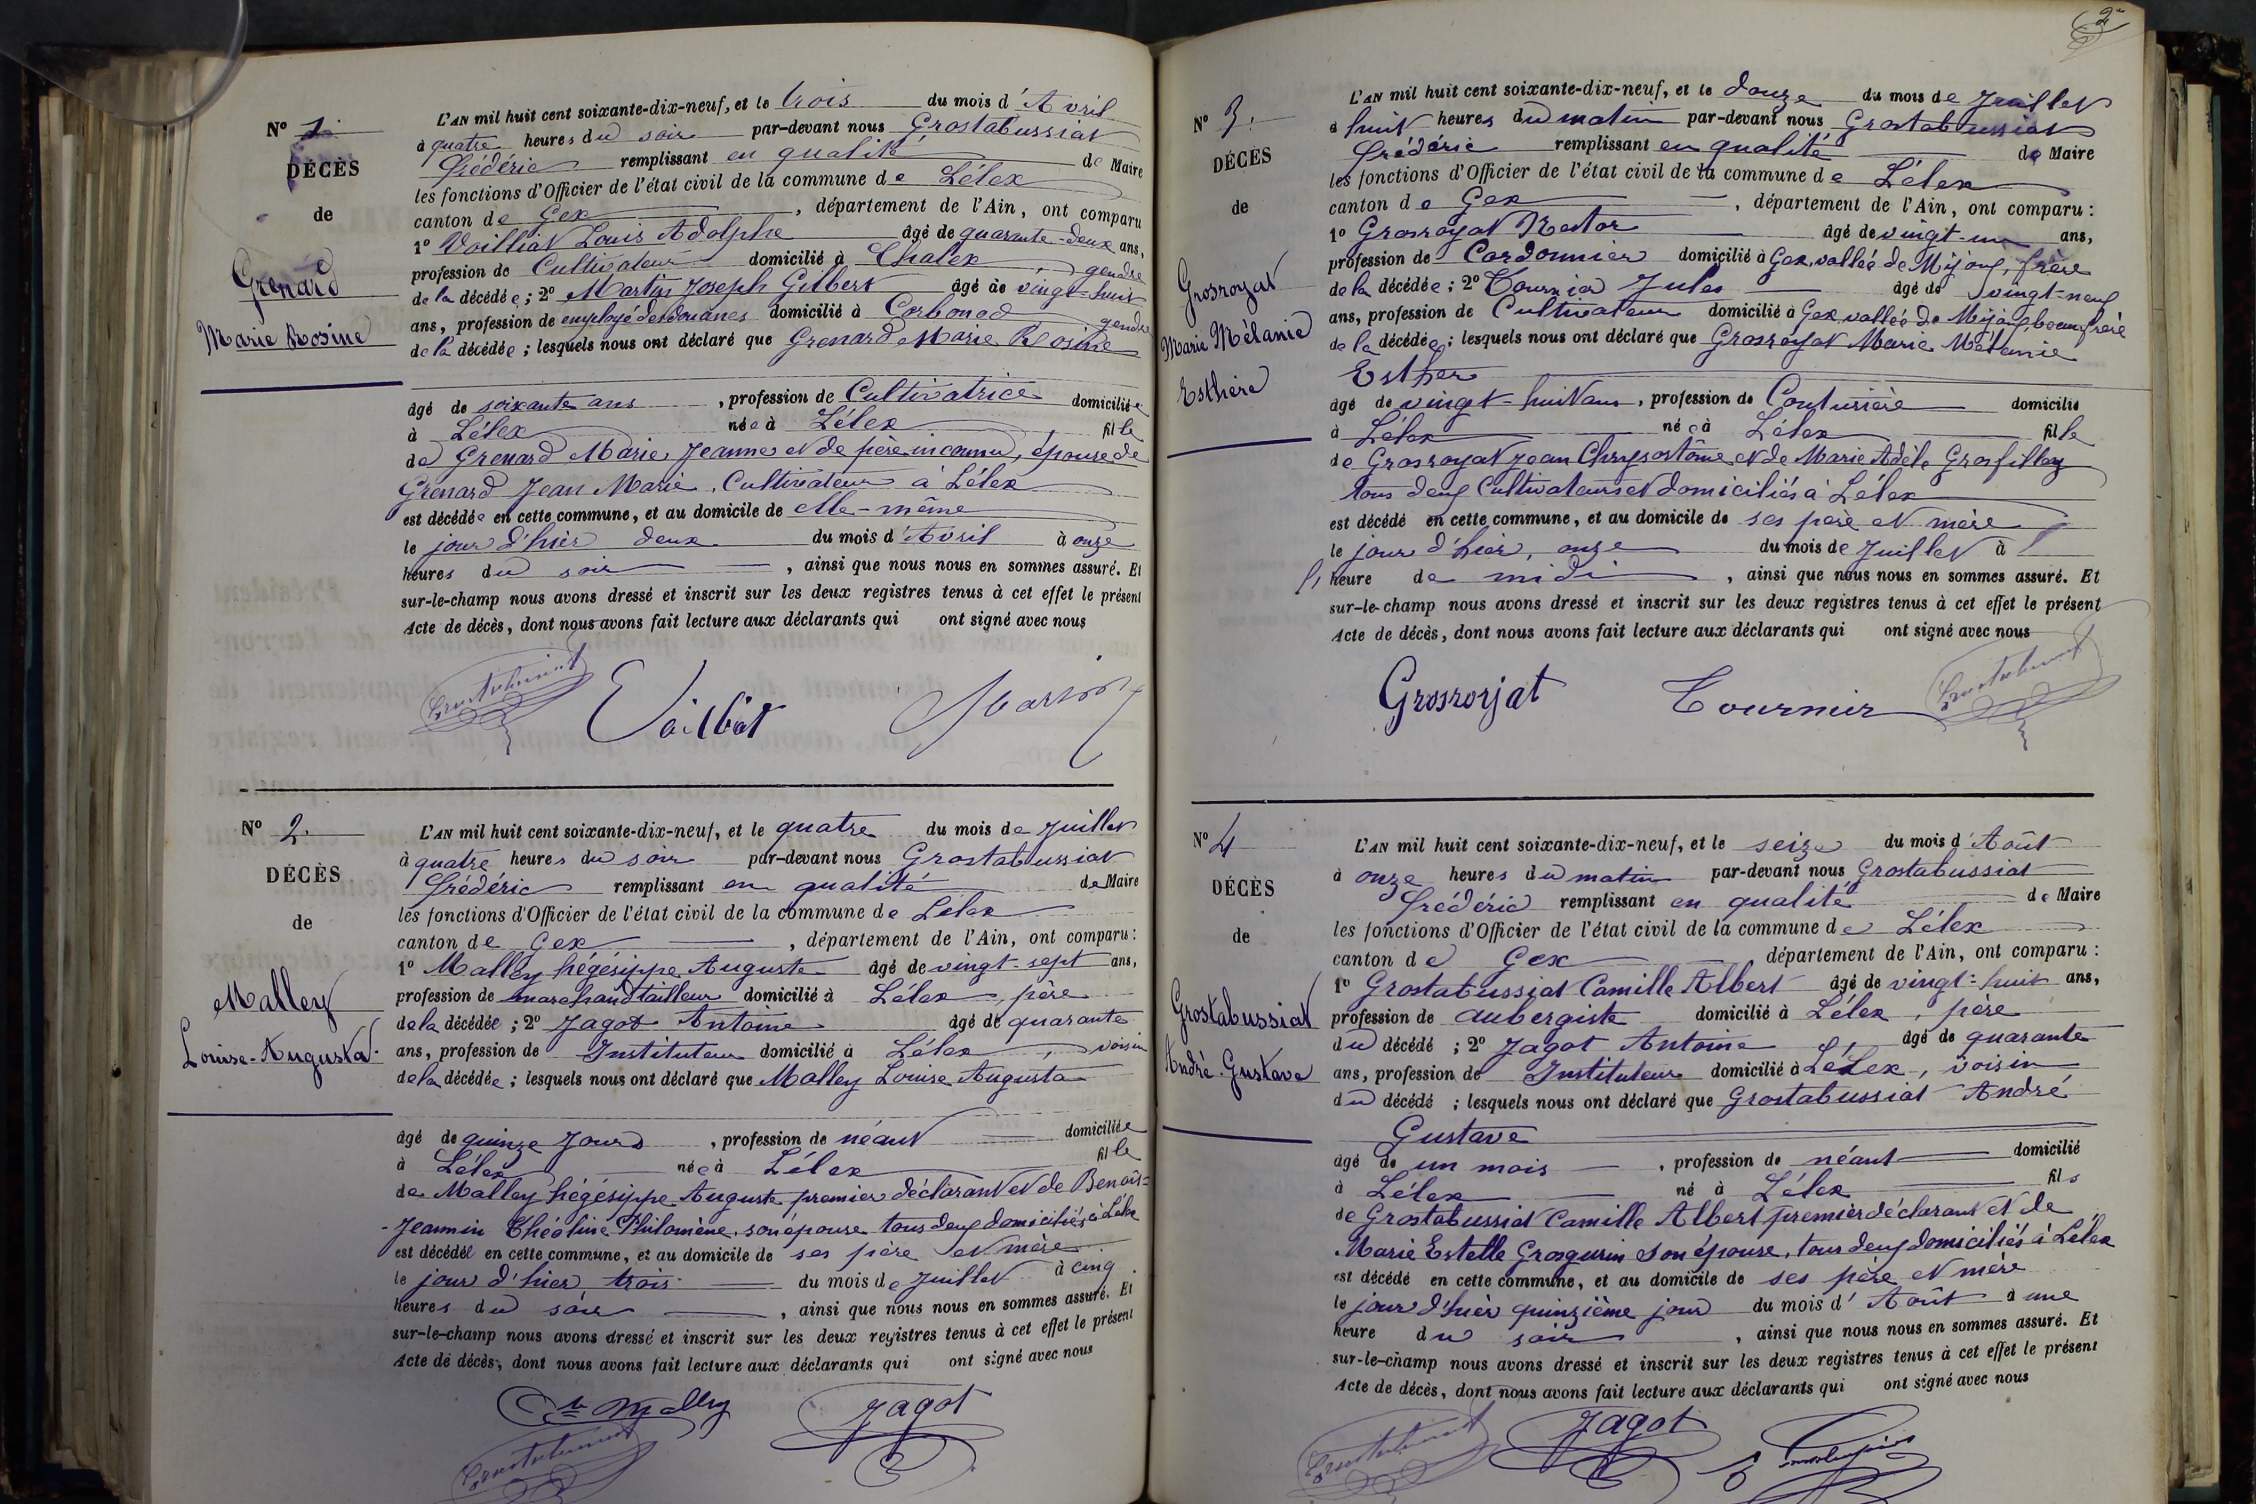 2
Nº 1.
DÉCÈS
de
Grenard
Marie Rosine
L'AN mil huit cent soixante-dix-neuf, et le trois du mois d'Avril
à quatre heures du soir par-devant nous Grostabussiat
Frédéric remplissant en qualité de Maire
les fonctions d'Officier de l'état civil de la commune de Lélex
canton de Gex, département de l'Ain, ont comparu
1º Voilliat Louis Adolphe âgé de quarante-deux ans,
profession de Cultivateur domicilié à Chalex, gendre
de la décédée; 2º Martin Joseph Gilbert âgé de vingt-huit
ans, profession de employé des douanes domicilié à Corbonod gendre
de la décédée; lesquels nous ont déclaré que Grenard Marie Rosine
âgé de soixante ans, profession de Cultivatrice domiciliée
à Lélex née à Lélex fille
de Grenard Marie Jeanne et de père inconnu, épouse de
Grenard Jean Marie, Cultivateur à Lélex
est décédée en cette commune, et au domicile de elle-même
le jour d'hier deux du mois d'Avril à onze
heures du soir, ainsi que nous nous en sommes assuré. Et
sur-le-champ nous avons dressé et inscrit sur les deux registres tenus à cet effet le présent
Acte de décès, dont nous avons fait lecture aux déclarants qui ont signé avec nous
Voilliat Martin
Nº 2.
DÉCÈS
de
Malley
Louise-Augusta
L'AN mil huit cent soixante-dix-neuf, et le quatre du mois de Juillet
à quatre heures du soir par-devant nous Grostabussiat
Frédéric remplissant en qualité de Maire
les fonctions d'Officier de l'état civil de la commune de Lélex
canton de Gex, département de l'Ain, ont comparu:
1º Malley hégésippe Auguste âgé de vingt-sept ans,
profession de marchand tailleur domicilié à Lélex, père
de la décédée; 2º Jagot Antoine âgé de quarante
ans, profession de Instituteur domicilié à Lélex, voisin
de la décédée; lesquels nous ont déclaré que Malley Louise Augusta
âgé de quinze jours, profession de néant domiciliée
à Lélex née à Lélex fille
de Malley hégésippe Auguste premier déclarant et de Benoit=
-Jeannin Théoline Philomène, son épouse tous deux domiciliés à Lélex
est décédée en cette commune, et au domicile de ses père et mère
le jour d'hier trois du mois de Juillet à cinq
heures du soir, ainsi que nous nous en sommes assuré. Et
sur-le-champ nous avons dressé et inscrit sur les deux registres tenus à cet effet le présent
Acte de décès, dont nous avons fait lecture aux déclarants qui ont signé avec nous
Malley Jagot
Nº 3.
DÉCÈS
de
Grosroyat
Marie Mélanie
Esthère
L'AN mil huit cent soixante-dix-neuf, et le douze du mois de Juillet
à huit heures du matin par-devant nous Grostabussiat
Frédéric remplissant en qualité de Maire
les fonctions d'Officier de l'état civil de la commune de Lélex
canton de Gex, département de l'Ain, ont comparu:
1º Grosroyat Nestor âgé de vingt-un ans,
profession de Cordonnier domicilié à Gex, vallée de Mijoux, frère
de la décédée; 2º Tournier Jules âgé de vingt-neuf
ans, profession de Cultivateur domicilié à Gex, vallée de Mijoux, beau frère
de la décédée; lesquels nous ont déclaré que Grosroyat Marie Mélanie
Esther
âgé de vingt-huit ans, profession de Couturière domicilié
à Lélex née à Lélex fille
de Grosroyat Jean Chrysostôme et de Marie Adèle Grosfilley
tous deux Cultivateurs et domiciliés à Lélex
est décédé en cette commune, et au domicile de ses père et mère
le jour d'hier, onze du mois de Juillet à
heure de midi, ainsi que nous nous en sommes assuré. Et
sur-le-champ nous avons dressé et inscrit sur les deux registres tenus à cet effet le présent
Acte de décès, dont nous avons fait lecture aux déclarants qui ont signé avec nous
Grosroyat Tournier
Nº 4
DÉCÈS
de
Grostabussiat
André-Gustave
L'AN mil huit cent soixante-dix-neuf, et le seize du mois d'Août
à onze heures du matin par-devant nous Grostabussiat
Frédéric remplissant en qualité de Maire
les fonctions d'Officier de l'état civil de la commune de Lélex
canton de Gex département de l'Ain, ont comparu:
1º Grostabussiat Camille Albert âgé de vingt-huit ans,
profession de aubergiste domicilié à Lélex, père
du décédé; 2º Jagot Antoine, âgé de quarante
ans, profession de Instituteur domicilié à Lélex, voisin
du décédé; lesquels nous ont déclaré que Grostabussiat André
Gustave
âgé de un mois, profession de néant domicilié
à Lélex né à Lélex fils
de Grostabussiat Camille Albert premier déclarant et de
Marie Estelle Grosgurin son épouse, tous deux domiciliés à Lélex
est décédé en cette commune, et au domicile de ses père et mère
le jour d'hier quinzième jour du mois d'Août à une
heure du soir, ainsi que nous nous en sommes assuré. Et
sur-le-champ nous avons dressé et inscrit sur les deux registres tenus à cet effet le présent
Acte de décès, dont nous avons fait lecture aux déclarants qui ont signé avec nous
Jagot